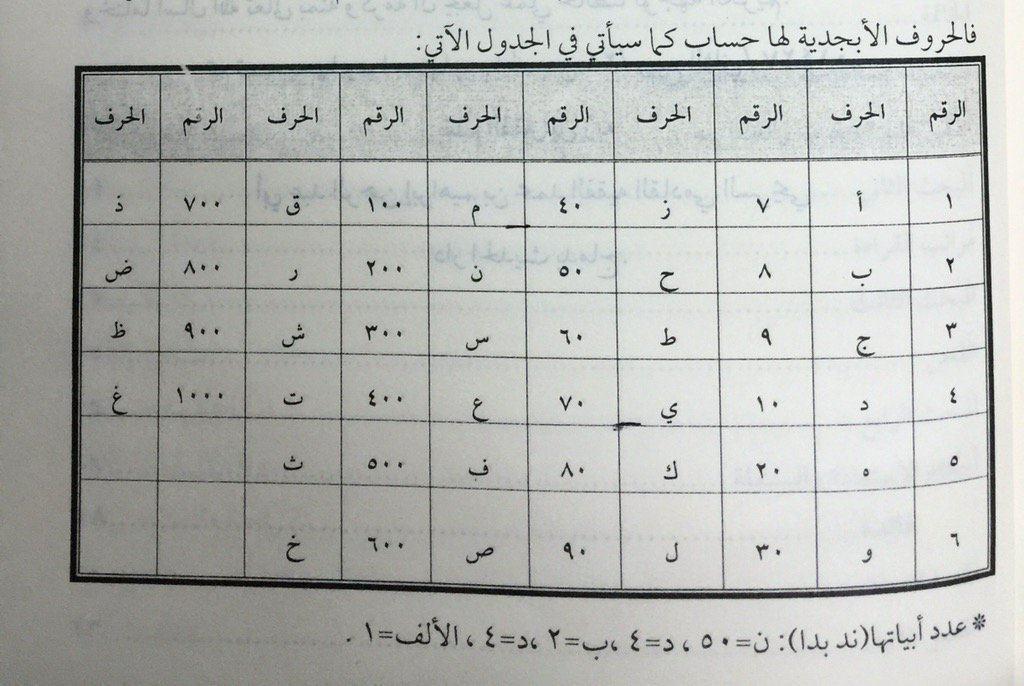 فالحروف الأبجدية لها حساب كما سيأتي في الجدول الآتي:
الرقم الحرف الرقم الحرف الرقم الحرف الرقم الحرف الرقم الحرف
١ أ ٧ ز ٤٠ م ١٠٠ ق ٧٠٠ ذ
٢ ب ٨ ح ٥٠ ن ٢٠٠ ر ٨٠٠ ض
٣ ج ٩ ط ٦٠ س ٣٠٠ ش ٩٠٠ ظ
٤ د ١٠ ي ٧٠ ع ٤٠٠ ت ١٠٠٠ غ
٥ ه ٢٠ ك ٨٠ ف ٥٠٠ ث
٦ و ٣٠ ل ٩٠ ص ٦٠٠ خ
* عدد أبياتها(ند بدا): ن=٥٠ ، د=٤ ،ب=٢ ،د=٤ ، الألف=١ .